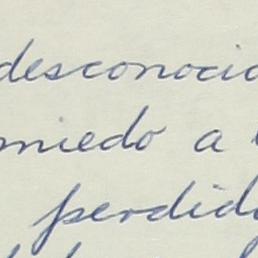 desconocid
miedo a
perdido